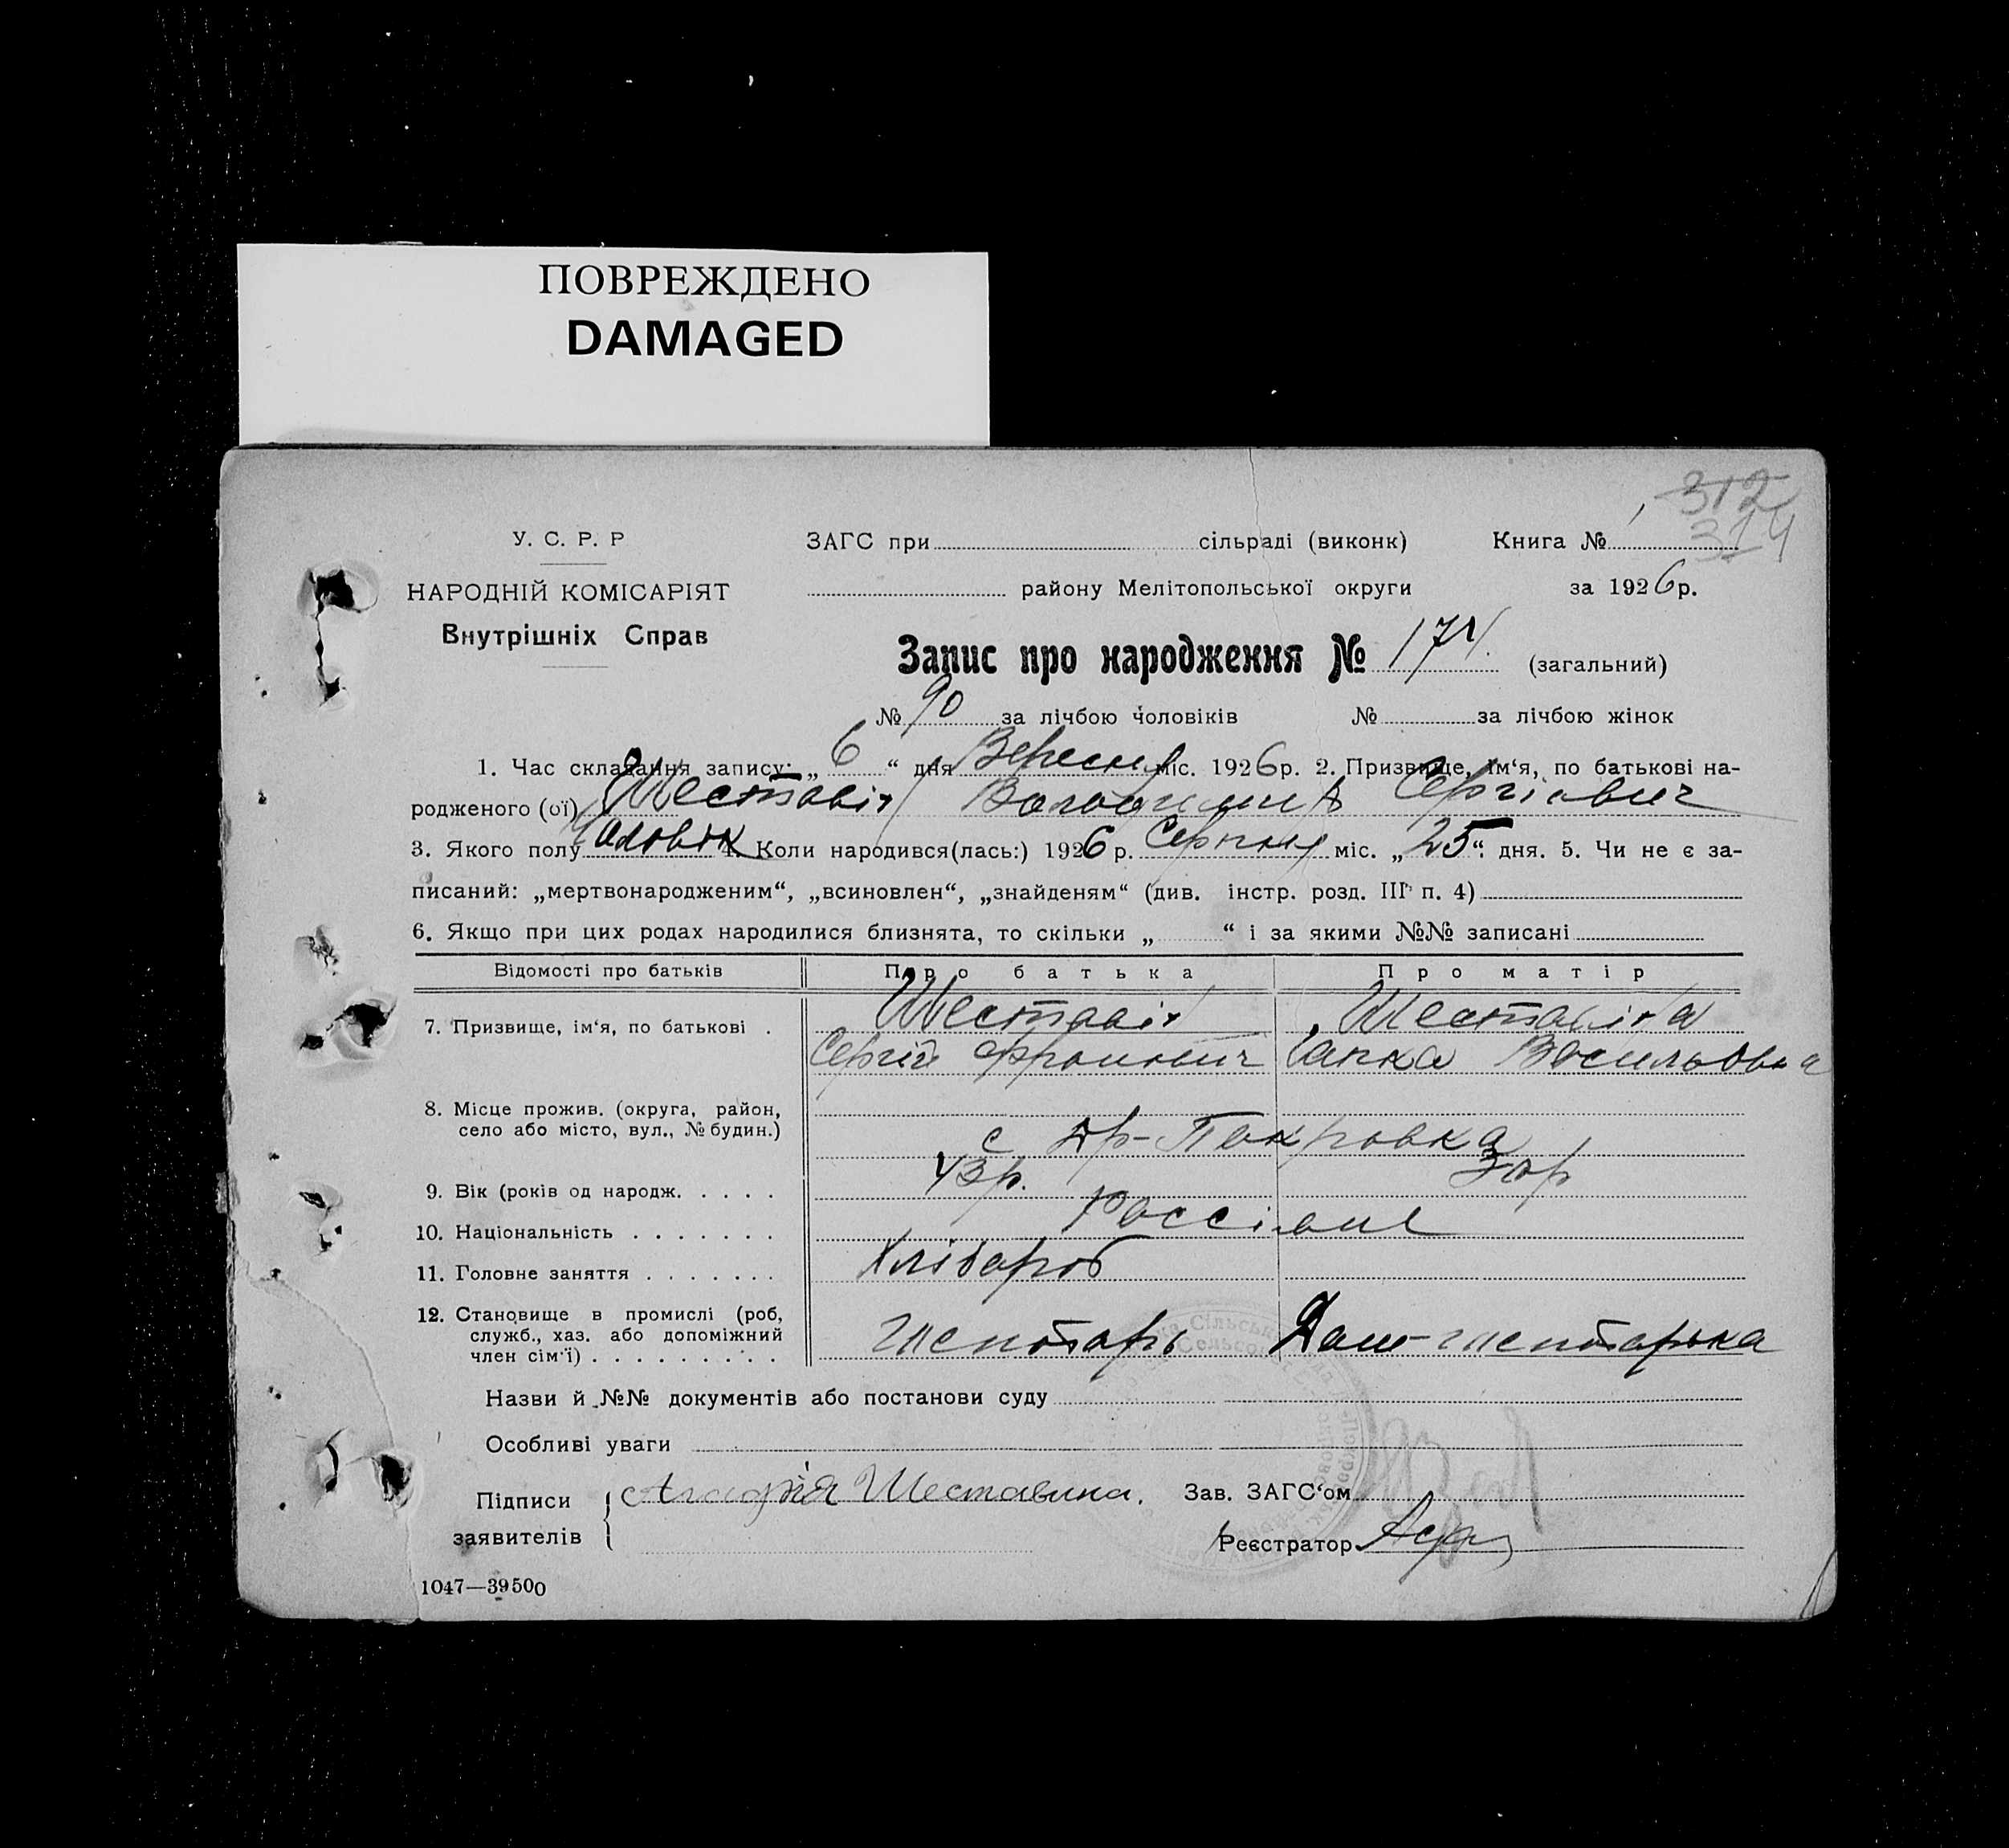 ПОВРЕЖДЕНО
DAMAGED
312
314
У. С. Р. Р
ЗАГС при сільраді (виконк) Книга №
НАРОДНІЙ КОМІСАРІЯТ
району Мелітопольської округи за 1926 р.
Внутрішніх Справ
Запис про народження № 174. (загальний)
№ 90 за лічбою чоловіків № за лічбою жінок
1. Час складання запису: „ 6 “ дня Вересня міс. 1926 р. 2. Призвище, ім‘я, по батькові на-
родженого (ої) Шеставін Володимир Сергіович
3. Якого полу Чоловік 4. Коли народився(лась:) 1926 р. Серпня міс. „ 25 “ дня. 5. Чи не є за-
писаний: „мертвонародженим“, „всиновлен“, „знайденям“ (див. інстр. розд. III п. 4)
6. Якщо при цих родах народилися близнята, то скільки „ “ і за якими №№ записані
Відомості про батьків Про батька Про матір
7. Призвище, ім‘я, по батькові . Шеставін Шеставіна
Сергій Василь
8. Місце прожив. (округа, район,
село або місто, вул., № будин.)
с -Покровка
9. Вік (років од народж. . . . . 43 р.
10. Національність . . . . . . . Россіяне
11. Головне заняття . . . . . . . Хлібороб
12. Становище в промислі (роб,
служб., хаз. або допоміжний
член сім‘ї) . . . . . . . . .
Назви й №№ документів або постанови суду
Особливі уваги
Підписи Шеставина. Зав. ЗАГС‘ом
заявителів Реєстратор
1047—39500